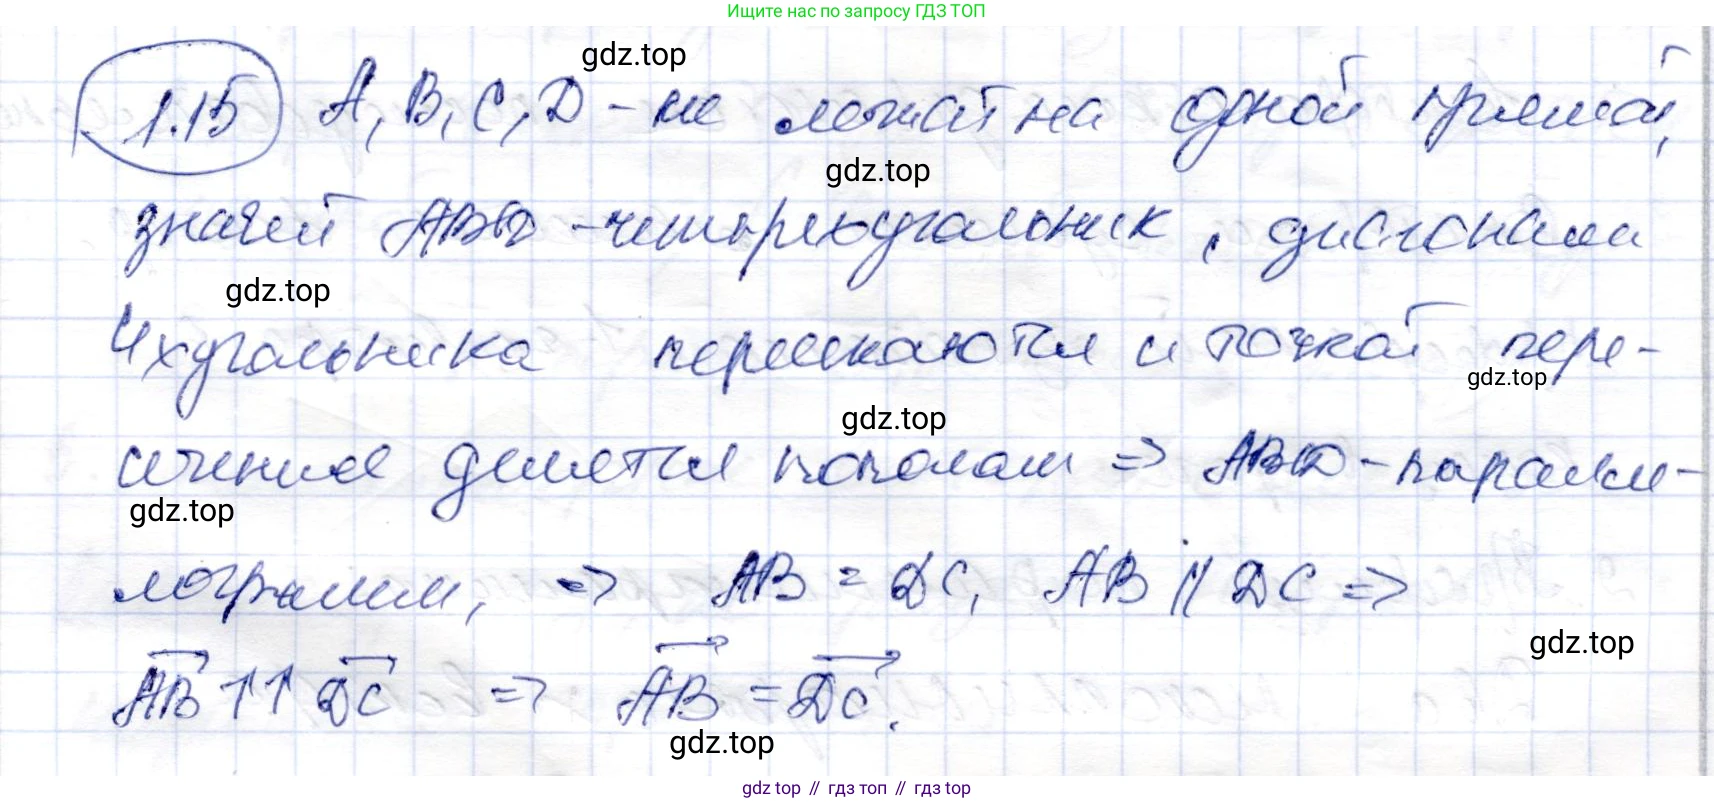 Ищите нас по запросу ГДЗ ТОП
gdz.top
1.15 A, B, C, D - не лежат на одной прямой,
gdz.top
значит ABCD - четырехугольник, диагонали
gdz.top
4хугольника пересекаются и точкой пере-
gdz.top
gdz.top
сечения делятся пополам => ABCD - паралле-
gdz.top
лограмм, => AB = DC, AB || DC =>
gdz.top
AB ↑↑ DC => AB = DC.
gdz.top
gdz top // гдз топ // gdz top